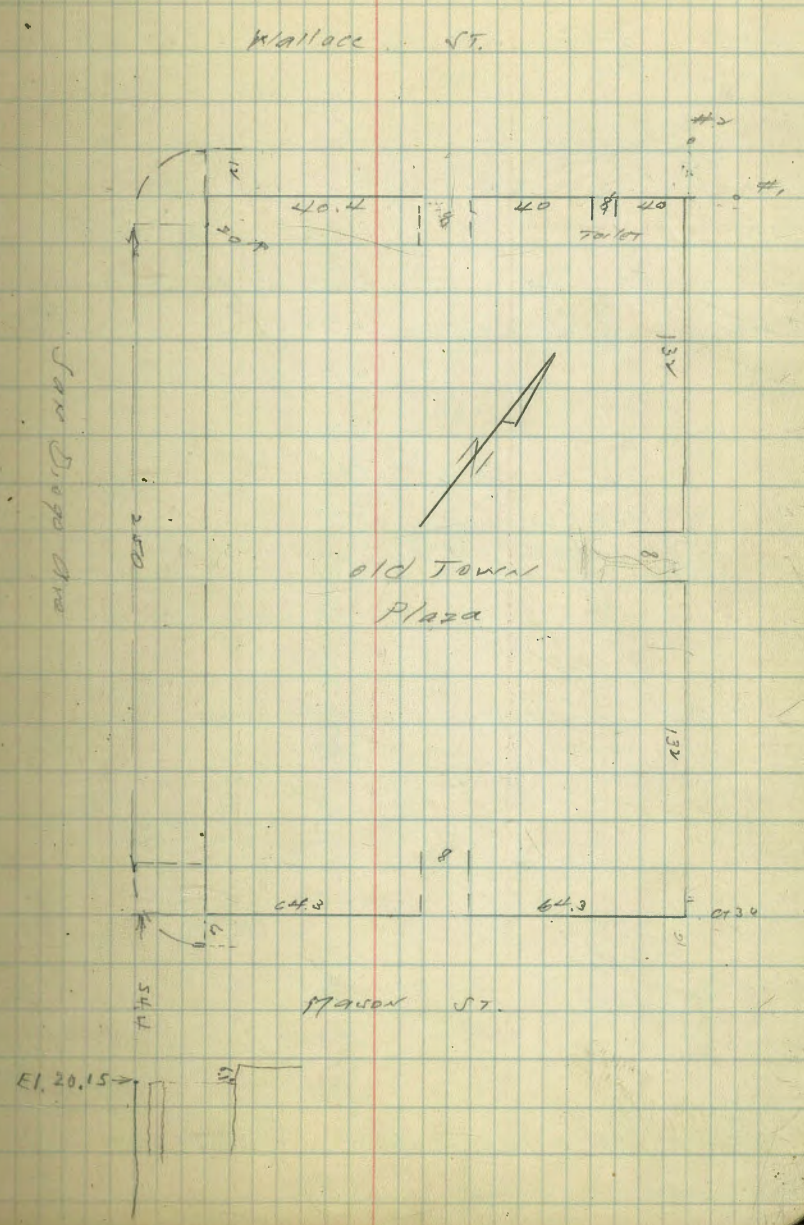 Wallace ST.
#2
#1
12
40.4
8
40
8
40
Toilet
132
San Diego Ave
250
Old Town
Plaza
8
132
8
64.3
64.3
7
54.4
Mason ST.
El. 20.15